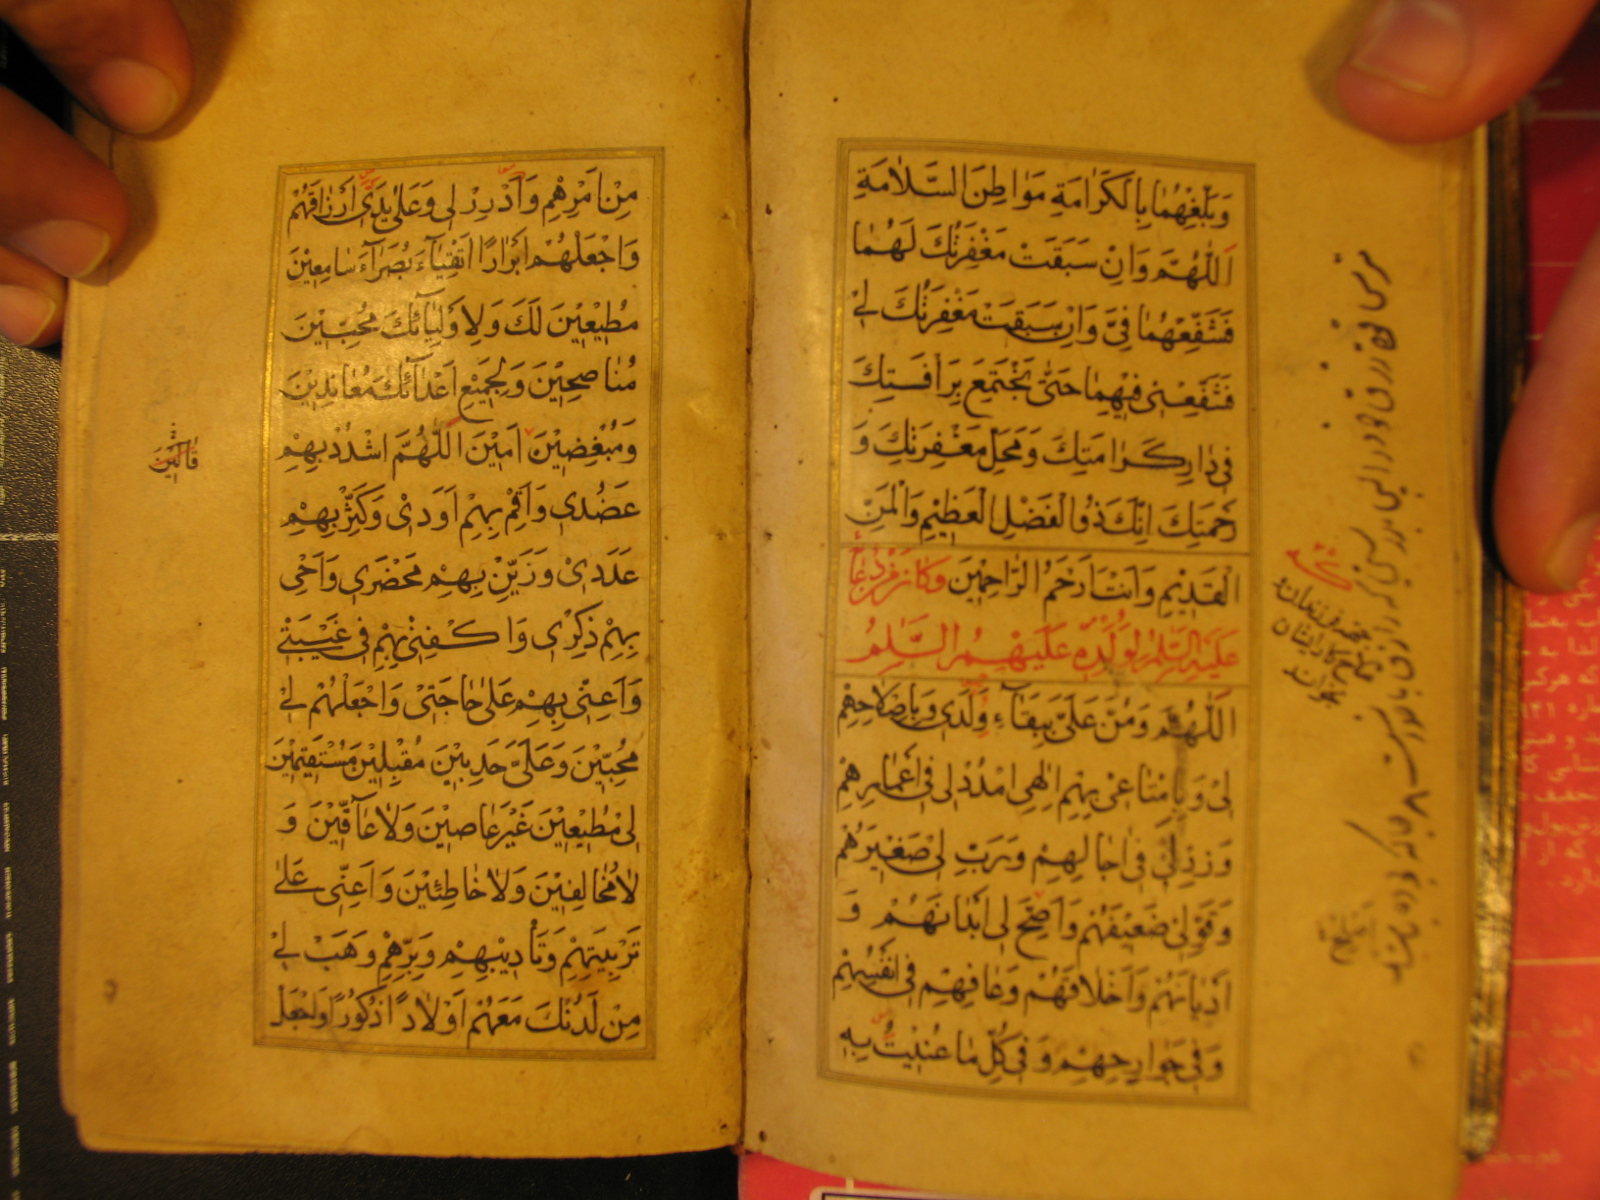 وَبَلِّغْهُمَا بِالْكَرَامَةِ مَوَاطِنَ السَّلَامَةِ
اَللّٰهُمَّ وَاِنْ سَبَقَتْ مَغْفِرَتُكَ لَهُمَا
فَشَفِّعْهُمَا فِيَّ وَاِنْ سَبَقَتْ مَغْفِرَتُكَ لِي
فَشَفِّعْنِي فِيهِمَا حَتّٰى نَجْتَمِعَ بِرَأْفَتِكَ
فِي دَارِ كَرَامَتِكَ وَمَحَلِّ مَغْفِرَتِكَ وَ
رَحْمَتِكَ اِنَّكَ ذُو الْفَضْلِ الْعَظِيمِ وَالْمَنِّ
الْقَدِيمِ وَاَنْتَ اَرْحَمُ الرَّاحِمِينَ وَكَانَ مِنْ دُعَائِهِ
عَلَيْهِ السَّلٰمُ لِوُلْدِهِ عَلَيْهِمُ السَّلٰمُ
اَللّٰهُمَّ وَمُنَّ عَلَيَّ بِبَقَاءِ وُلْدِي وَبِاِصْلَاحِهِمْ
لِي وَبِاِمْتَاعِي بِهِمْ اِلٰهِي امْدُدْ لِي فِي اَعْمَارِهِمْ
وَزِدْ لِي فِي اٰجَالِهِمْ وَرَبِّ لِي صَغِيرَهُمْ
وَقَوِّ لِي ضَعِيفَهُمْ وَاَصِحَّ لِي اَبْدَانَهُمْ وَ
اَدْيَانَهُمْ وَاَخْلَاقَهُمْ وَعَافِهِمْ فِي اَنْفُسِهِمْ
وَفِي جَوَارِحِهِمْ وَفِي كُلِّ مَا عُنِيتُ بِهِ
مِنْ اَمْرِهِمْ وَاَدْرِرْ لِي وَعَلٰى يَدَيَّ اَرْزَاقَهُمْ
وَاجْعَلْهُمْ اَبْرَارًا اَتْقِيَاءَ بُصَرَاءَ سَامِعِينَ
مُطِيعِينَ لَكَ وَلِاَوْلِيَائِكَ مُحِبِّينَ
مُنَاصِحِينَ وَلِجَمِيعِ اَعْدَائِكَ مُعَانِدِينَ
وَمُبْغِضِينَ اٰمِينَ اَللّٰهُمَّ اشْدُدْ بِهِمْ
عَضُدِي وَاَقِمْ بِهِمْ اَوَدِي وَكَثِّرْ بِهِمْ
عَدَدِي وَزَيِّنْ بِهِمْ مَحْضَرِي وَاَحْيِ
بِهِمْ ذِكْرِي وَاكْفِنِي بِهِمْ فِي غَيْبَتِي
وَاَعِنِّي بِهِمْ عَلٰى حَاجَتِي وَاجْعَلْهُمْ لِي
مُحِبِّينَ وَعَلَيَّ حَدِبِينَ مُقْبِلِينَ مُسْتَقِيمِينَ
لِي مُطِيعِينَ غَيْرَ عَاصِينَ وَلَا عَاقِّينَ وَ
لَا مُخَالِفِينَ وَلَا خَاطِئِينَ وَاَعِنِّي عَلٰى
تَرْبِيَتِهِمْ وَتَأْدِيبِهِمْ وَبِرِّهِمْ وَهَبْ لِي
مِنْ لَدُنْكَ مَعَهُمْ اَوْلَادًا ذُكُورًا وَاجْعَلْ